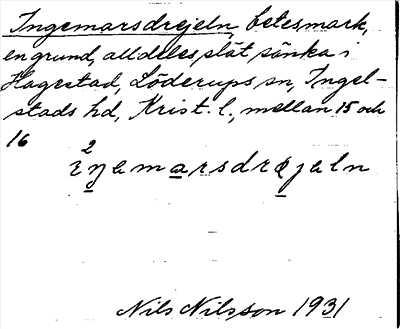 Ingemarsdrejeln, betesmark,
en grund, alldeles slät sänka i
Hagestad, Löderups sn, Ingel-
stads hd, Krist. l., mellan 15 och
16
2
iŋemarsdrejeln
Nils Nilsson 1931